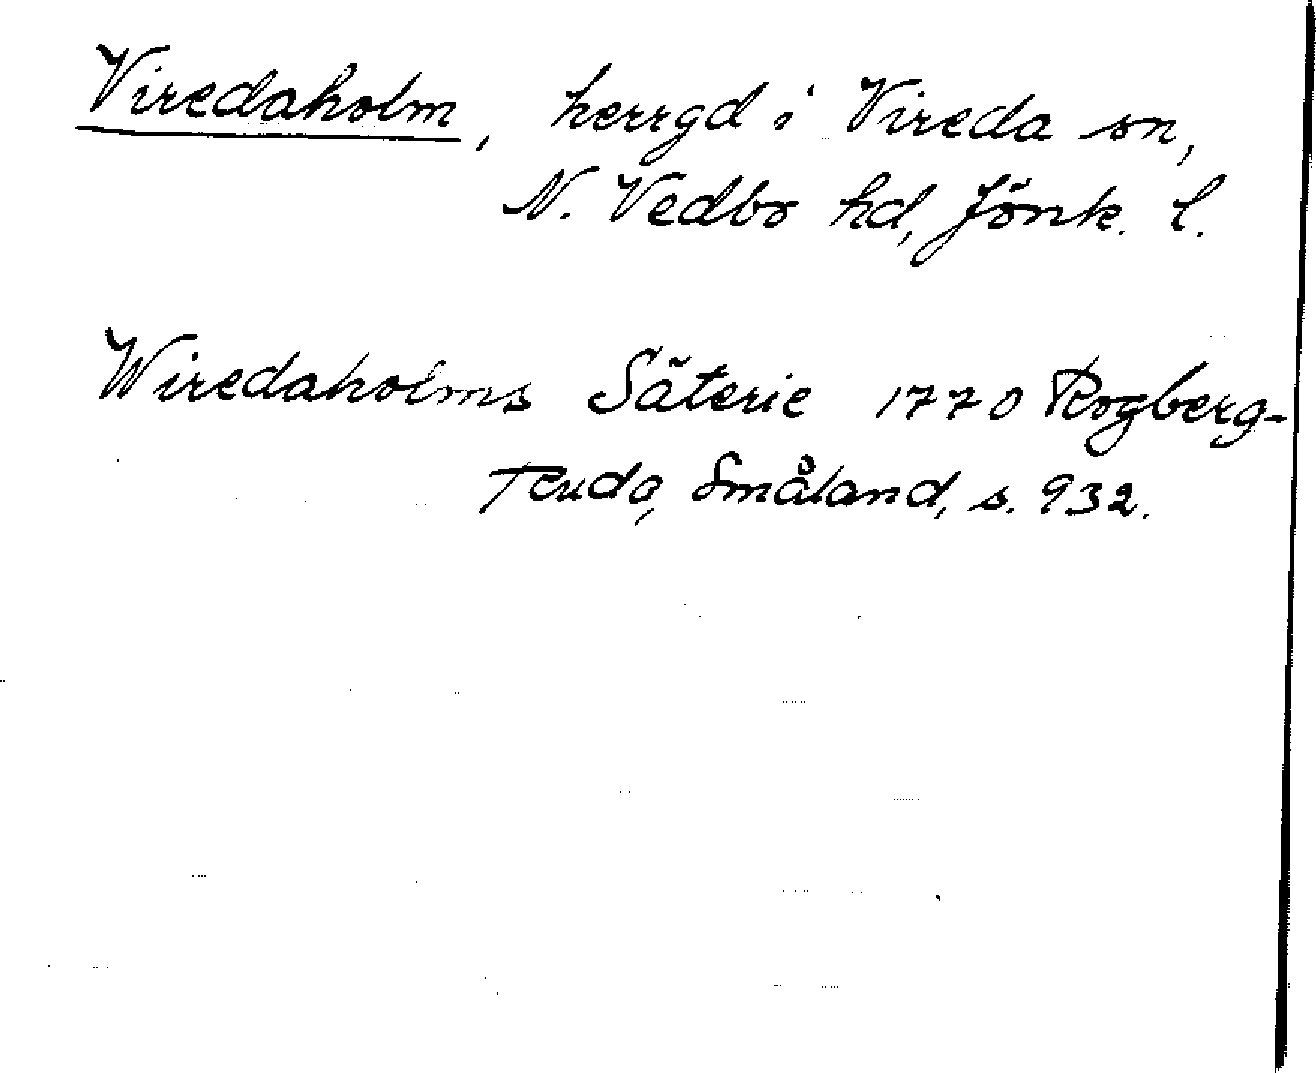 Viredaholm, herrgd i Vireda sn,
N. Vedbo hd, Jönk. l.
Wiredaholms Säterie 1770 Rogberg-
Ruda, Småland, s. 932.